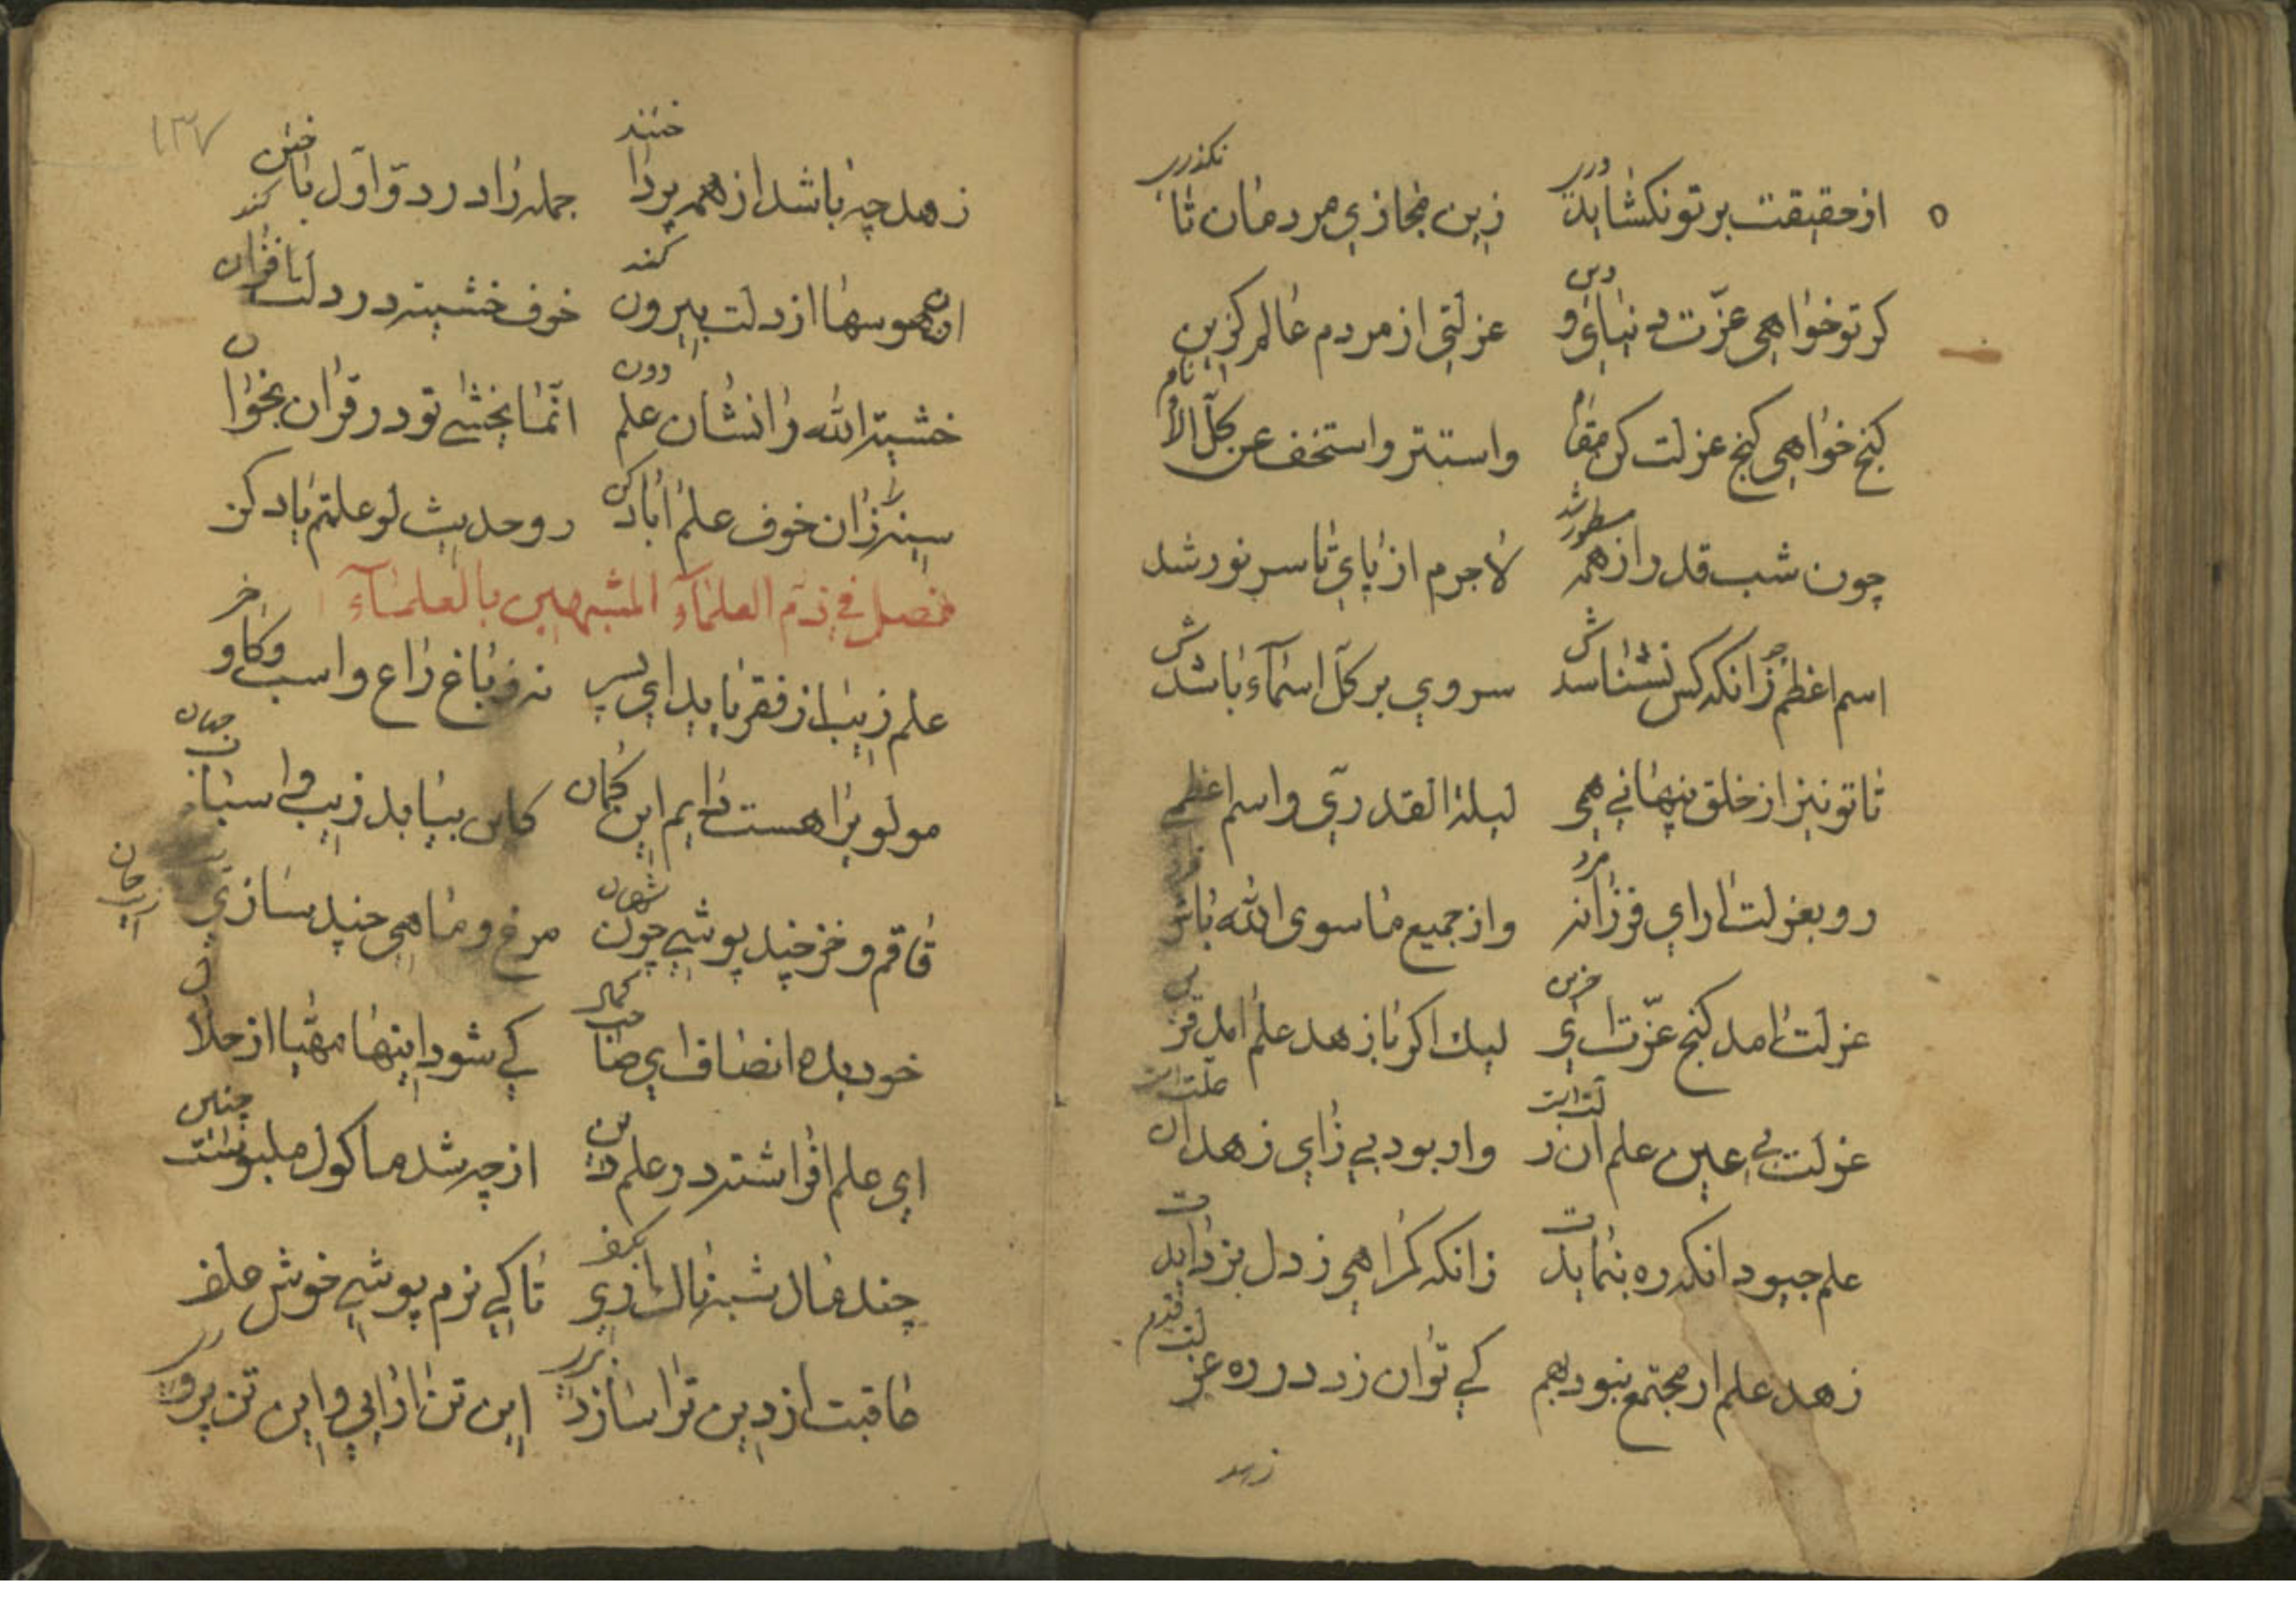 از حقیقت بر تو نکشاید دری زین مجازی مردمان تا نکذری
کر تو خواهی عزت دنیا و دین عزلتی از مردم عالم کزین
کنج خواهی کنج عزلت کن مقام واستتر واستخف عن کل الانام
چون شب قدر از همه مستور شد لاجرم از پای تا سر نور شد
اسم اعظم زانکه کس نشناسدش سروری بر کل اسماء باشدش
تا تو نیز از خلق پنهانی همی لیلة القدری و اسم اعظمی
رو بعزلت ار ای فرزانه مرد واز جمیع ماسوی الله باش فرد
عزلت امد کنج عزت ای حزین لیک اکر با زهد علم امد قرین
عزلت بی عین علم ان زلت است ور بود بی زای زهد ان علت است
علم چبود انکه ره بنمایدت زانکه کمراهی ز دل بزدایدت
زهد علم ار مجتمع نبود بهم کی توان زد در ره عزلت قدم
زهد
۱۳۷
زهد چه باشد از همه پرداختن جمله را در داو اول باختن
این هوسها از دلت بیرون کند خوف خشیت در دلت افزون کند
خشیة الله را نشان علم دان انما یخشی تو در قران بخوان
سینه را زان خوف علم اباد کن رو حدیث لو علمتم یاد کن
فصل فی ذم العلماء المشبهین بالعلماء
علم زیب از فقر یابد ای پسر نه ز باغ راغ و اسب و کاو و خر
مولوی را هست دایم این کمان کان بیابد زیب و اسباب جهان
قاقم و خز چند پوشی چون شهان مرغ و ماهی چند سازی زیب خوان
خود بده انصاف ای صاحب کمال کی شود اینها مهیا از حلال
ای علم افراشته در علم دین از چه شد ماکول ملبوست چنین
چند مال شبهه ناک اری بکف تا کی نرم پوشی خوش علف
عاقبت از دین ترا سازد بری این تن ارایی و این تن پروری